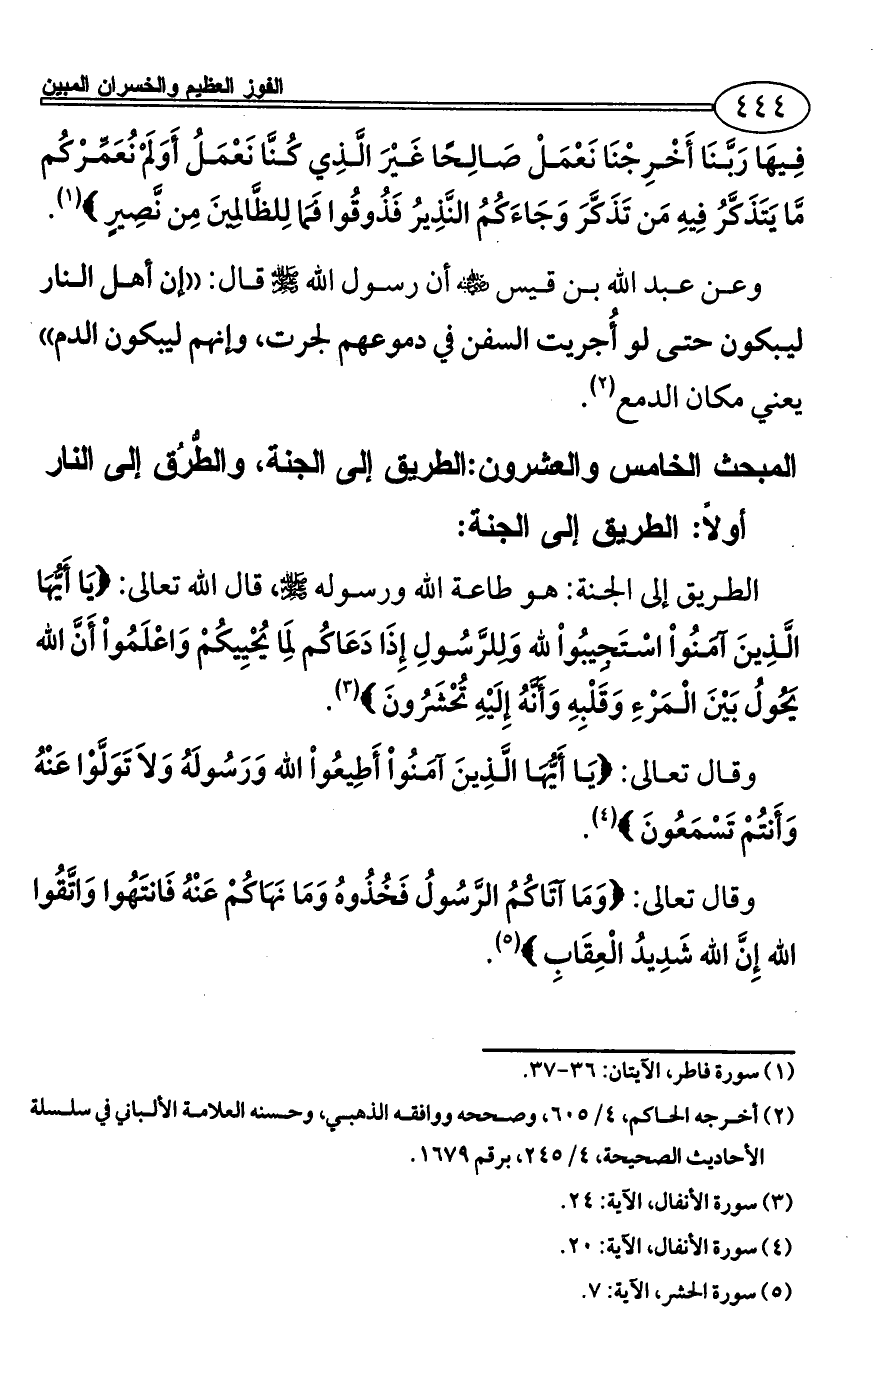 الفوز العظيم والخسران المبين
٤٤٤
فِيهَا رَبَّنَا أَخْرِجْنَا نَعْمَلْ صَالِحًا غَيْرَ الَّذِي كُنَّا نَعْمَلُ أَوَلَمْ نُعَمِّرْكُم
مَّا يَتَذَكَّرُ فِيهِ مَن تَذَكَّرَ وَجَاءَكُمُ النَّذِيرُ فَذُوقُوا فَمَا لِلظَّالِمِينَ مِن نَّصِيرٍ ﴾(١).
وعن عبد الله بن قيس ﵁ أن رسول الله ﷺ قال: ((إن أهل النار
ليبكون حتى لو أُجريت السفن في دموعهم لجرت، وإنهم ليبكون الدم))
يعني مكان الدمع(٢).
المبحث الخامس والعشرون:الطريق إلى الجنة، والطُّرُق إلى النار
أولاً: الطريق إلى الجنة:
الطريق إلى الجنة: هو طاعة الله ورسوله ﷺ، قال الله تعالى: ﴿يَا أَيُّهَا
الَّذِينَ آمَنُواْ اسْتَجِيبُواْ لله وَلِلرَّسُولِ إِذَا دَعَاكُم لِمَا يُحْيِيكُمْ وَاعْلَمُواْ أَنَّ الله
يَحُولُ بَيْنَ الْمَرْءِ وَقَلْبِهِ وَأَنَّهُ إِلَيْهِ تُحْشَرُونَ ﴾(٣).
وقال تعالى: ﴿يَا أَيُّهَا الَّذِينَ آمَنُواْ أَطِيعُواْ الله وَرَسُولَهُ وَلاَ تَوَلَّوْا عَنْهُ
وَأَنتُمْ تَسْمَعُونَ ﴾(٤).
وقال تعالى: ﴿وَمَا آتَاكُمُ الرَّسُولُ فَخُذُوهُ وَمَا نَهَاكُمْ عَنْهُ فَانتَهُوا وَاتَّقُوا
الله إِنَّ الله شَدِيدُ الْعِقَابِ ﴾(٥).
(١) سورة فاطر، الآيتان: ٣٦-٣٧.
(٢) أخرجه الحاكم، ٤/ ٦٠٥، وصححه ووافقه الذهبي، وحسنه العلامة الألباني في سلسلة
الأحاديث الصحيحة، ٤/ ٢٤٥، برقم ١٦٧٩.
(٣) سورة الأنفال، الآية: ٢٤.
(٤) سورة الأنفال، الآية: ٢٠.
(٥) سورة الحشر، الآية: ٧.